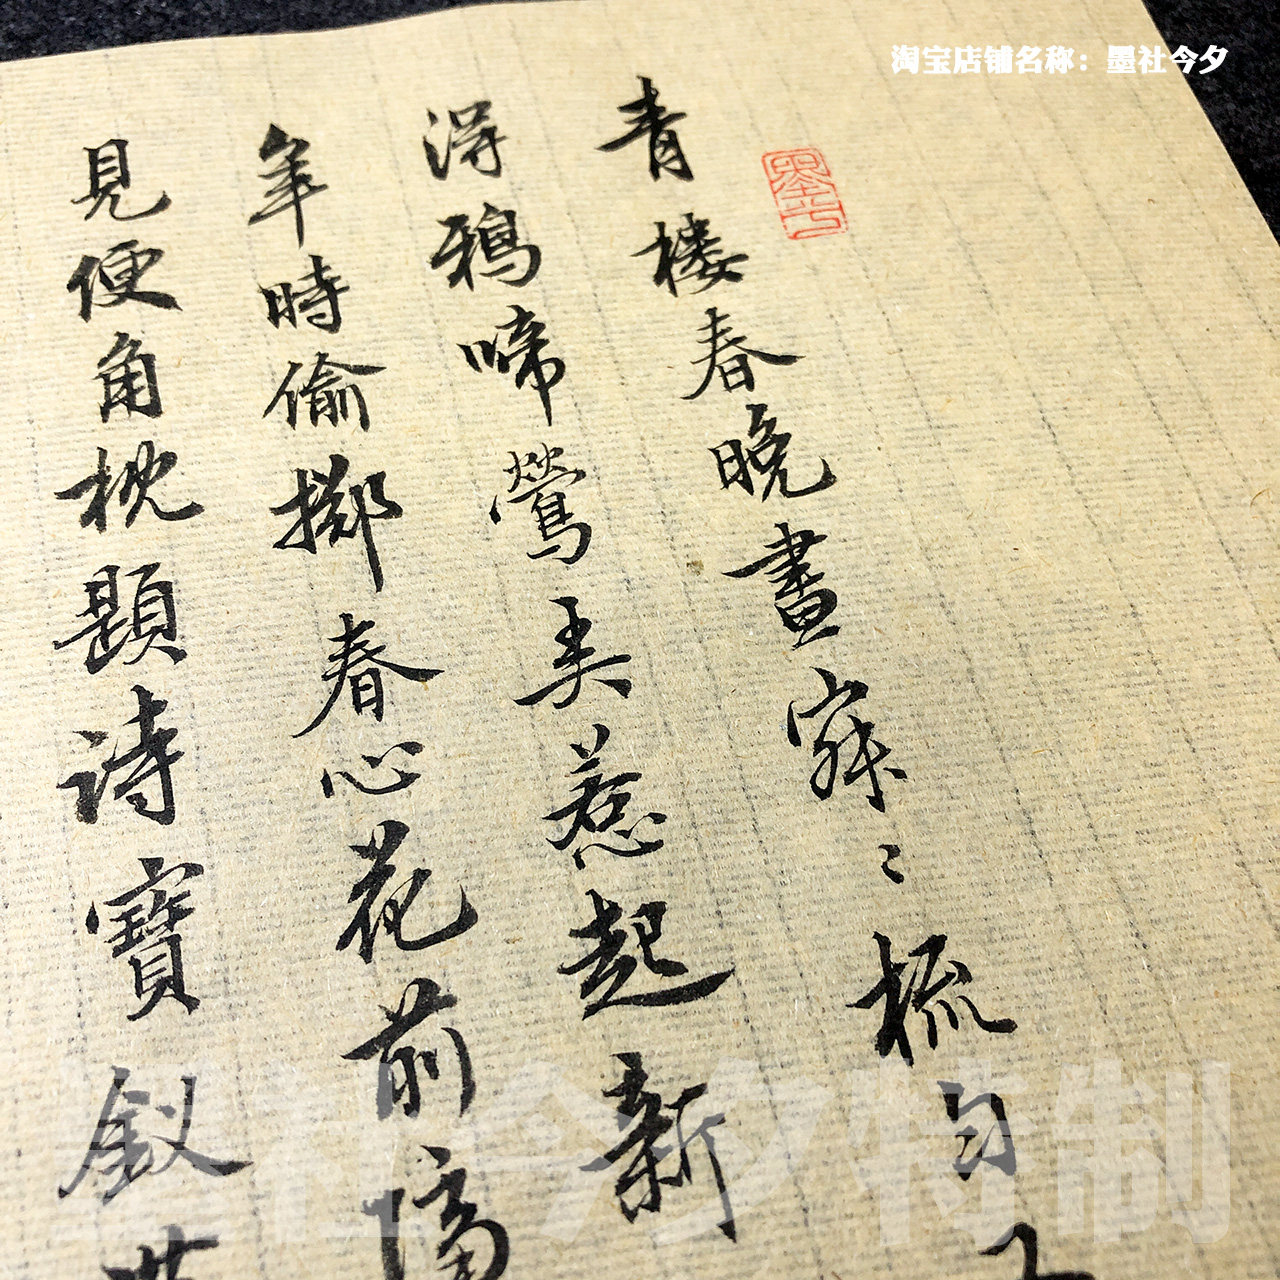 淘宝店铺名称：墨社今夕
青楼春晚晝寂〻梳匀
得鴉啼鶯弄惹起新
年時偷擲春心花前隔
見便角枕題詩寶釵
墨社今夕特制